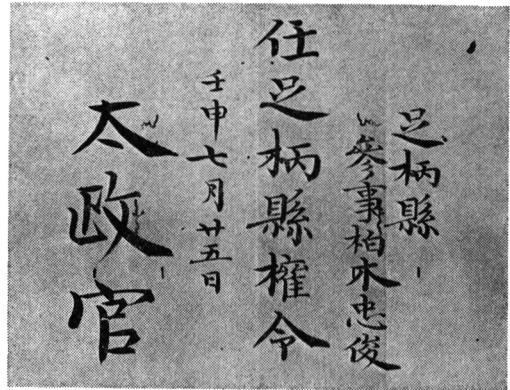 足柄縣
參事柏木忠俊
任足柄縣權令
壬申七月廿五日
太政官